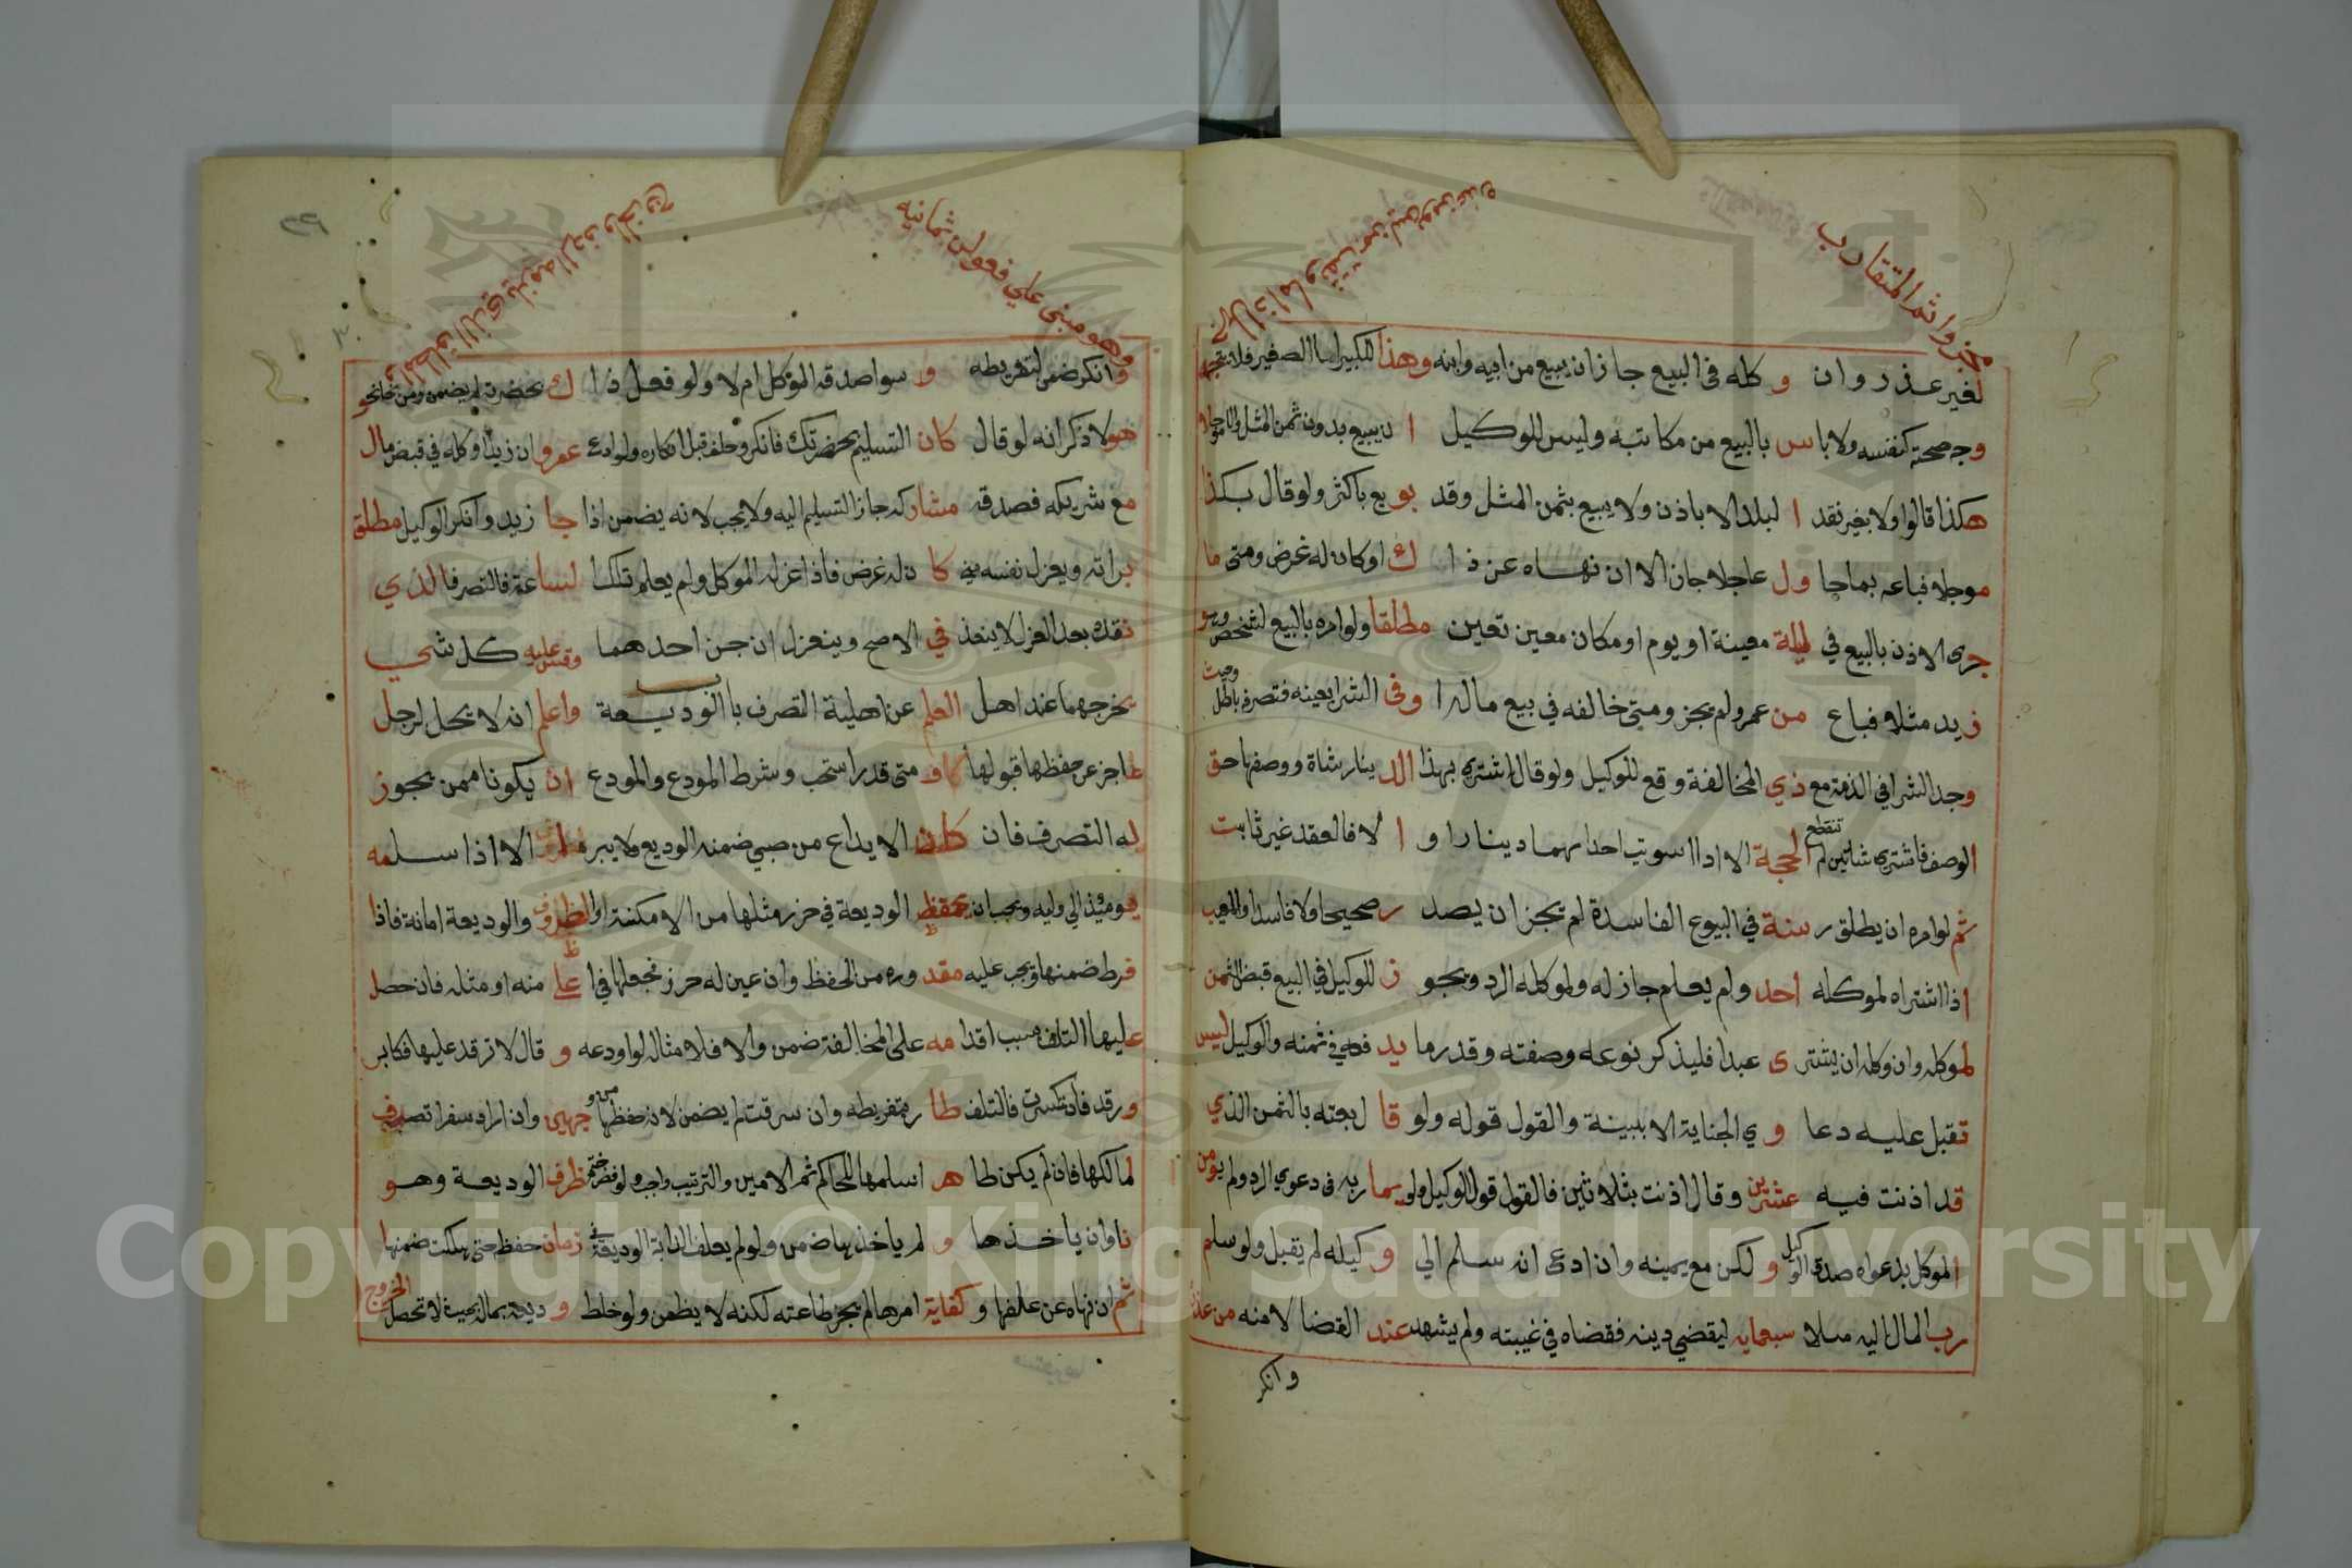 مخزوانثم المتقارب
لغير عذر وان و كله فى البيع جا زان يبيع من ابيه وابنه وهذا للكبير اما الصغير فلا يتجه
وجه صحته كنفسه ولا باس بالبيع من مكاتبه وليس للوكيل ا ن يبيع بدون ثمن المثل
هكذا قالوا ولا بغير نقد ا لبلد الا باذن ولا يبيع بثمن المثل وقد بو يع باكثر ولو قال بكذا
موجلا فباعه بما جا ول عاجلا جاز الا ان نهاه عن ذا ك او كان له غرض ومتى ما
جرى الاذن بالبيع في ليلة معينة او يوم او مكان معين تعين مطلقا ولو امره بالبيع لشخص وهو
زيد مثلا فباع من عمرو لم يجز ومتى خالفه في بيع ماله ا وفى الشرا بعينه فتصرفه باطل وحيث
وجد الشرا في الذمة مع ذي المخالفة وقع للوكيل ولو قال اشتري بهذا الد ينار شاة ووصفها حق
الوصف فاشترى شاتين لم تنقطع الحجة الا اذا اسوت احداهما دينارا و ا لا فالعقد غير ثابت
ثم لو امره ان يطلق ر سنة في البيوع الفاسدة لم يجز ان يصد ر صحيحا ولا فاسدا والمعيب
اذا اشتراه لموكله احد ولم يعلم جاز له ولموكله الرد ويجو ز للوكيل في البيع قبض الثمن
لموكله وان وكله ان يشتر ى عبدا فليذكر نوعه وصفته وقدر ما يد فعه في ثمنه والوكيل ليس
تقبل عليه دعا و ي الجناية الا ببينة والقول قوله ولو قا ل بعته بالثمن الذي
قد اذنت فيه عشرين وقال اذنت بثلاثين فالقول قول الوكيل ولو ربه فى دعوي الرد ولم يومن
الموكل بدعواه صدق الوكيل و لكن مع يمينه وان ادعى انه سلم الي و كيله لم يقبل ولو سلم
رب المال اليه مثلا سبعمايه ليقضي دينه فقضاه في غيبته ولم يشهد عند القضا لامنه من عذر
وانكر
وهو مبنى علي فعولن ثمانيه
وانكر ضمن لتفريطه و سوا صدقه الموكل ام لا ولو فعل ذا ك بحضرته لم يضمن ومن نحا نحو
هولا ذكر انه لو قال كان التسليم بحضرتك فانكر وحلف قبل انكاره ولو ادعى عمرو ان زيدا وكله في قبض مال
مع شريكه فصدقه مشاركه جاز التسليم اليه ولا يجب لانه يضمن اذا جا زيد وانكر الوكيل مطلق
براته ويعزل نفسه متى كا ن له غرض فاذا عزله الموكل ولم يعلم تلك ا لساعة فالتصرف الذي
نفذ بعد العزل لا ينفذ في الاصح وينعزل ان جن احدهما وقس عليه كل شي
يخرجهما عند اهل العلم عن اهلية التصرف با الوديعة واعلم انه لا يحل لرجل
عاجز عن حفظها قبولها و متى قدر استحب وشرط المودع والمودع ان يكونا ممن يجوز
له التصرف فان كان الايداع من صبي ضمنه الوديع ولا يبرا الا اذا سلمه
يومئذ الي وليه ويجب ان يحفظ الوديعة في حرز مثلها من الامكنة او الظروف والوديعة امانة فاذا
فرط ضمنها ويجب عليه مقد وره من الحفظ وان عين له حرز فجعلها في ا على منه او مثله فان حصل
عليها التلف بسبب اقدا مه على المخالفة ضمن والا فلا مثاله لو اودعه و قال لا ترقد عليها فكابر
ورقد فانكسرت فالتلف طا ر بتفريطه وان سرقت لم يضمن لانه حفظها من وجهين وان اراد سفرا تصرف
لمالكها فان لم يكن ظا هر اسلمها للحاكم ثم الامين والترتيب واجب ولو فض ختم ظرف الوديعة وهو
ناوان ياخذها و لم ياخذها ضمن ولو لم يعلف الدابة الوديعة في زمان حفظه حتى هلكت ضمنها
ثم ان نهاه عن علفها و كفاية امرها لم يجز طاعته لكنه لا يضمن ولو خلط و ديعة بماله بحيث لا تحصل الخروج